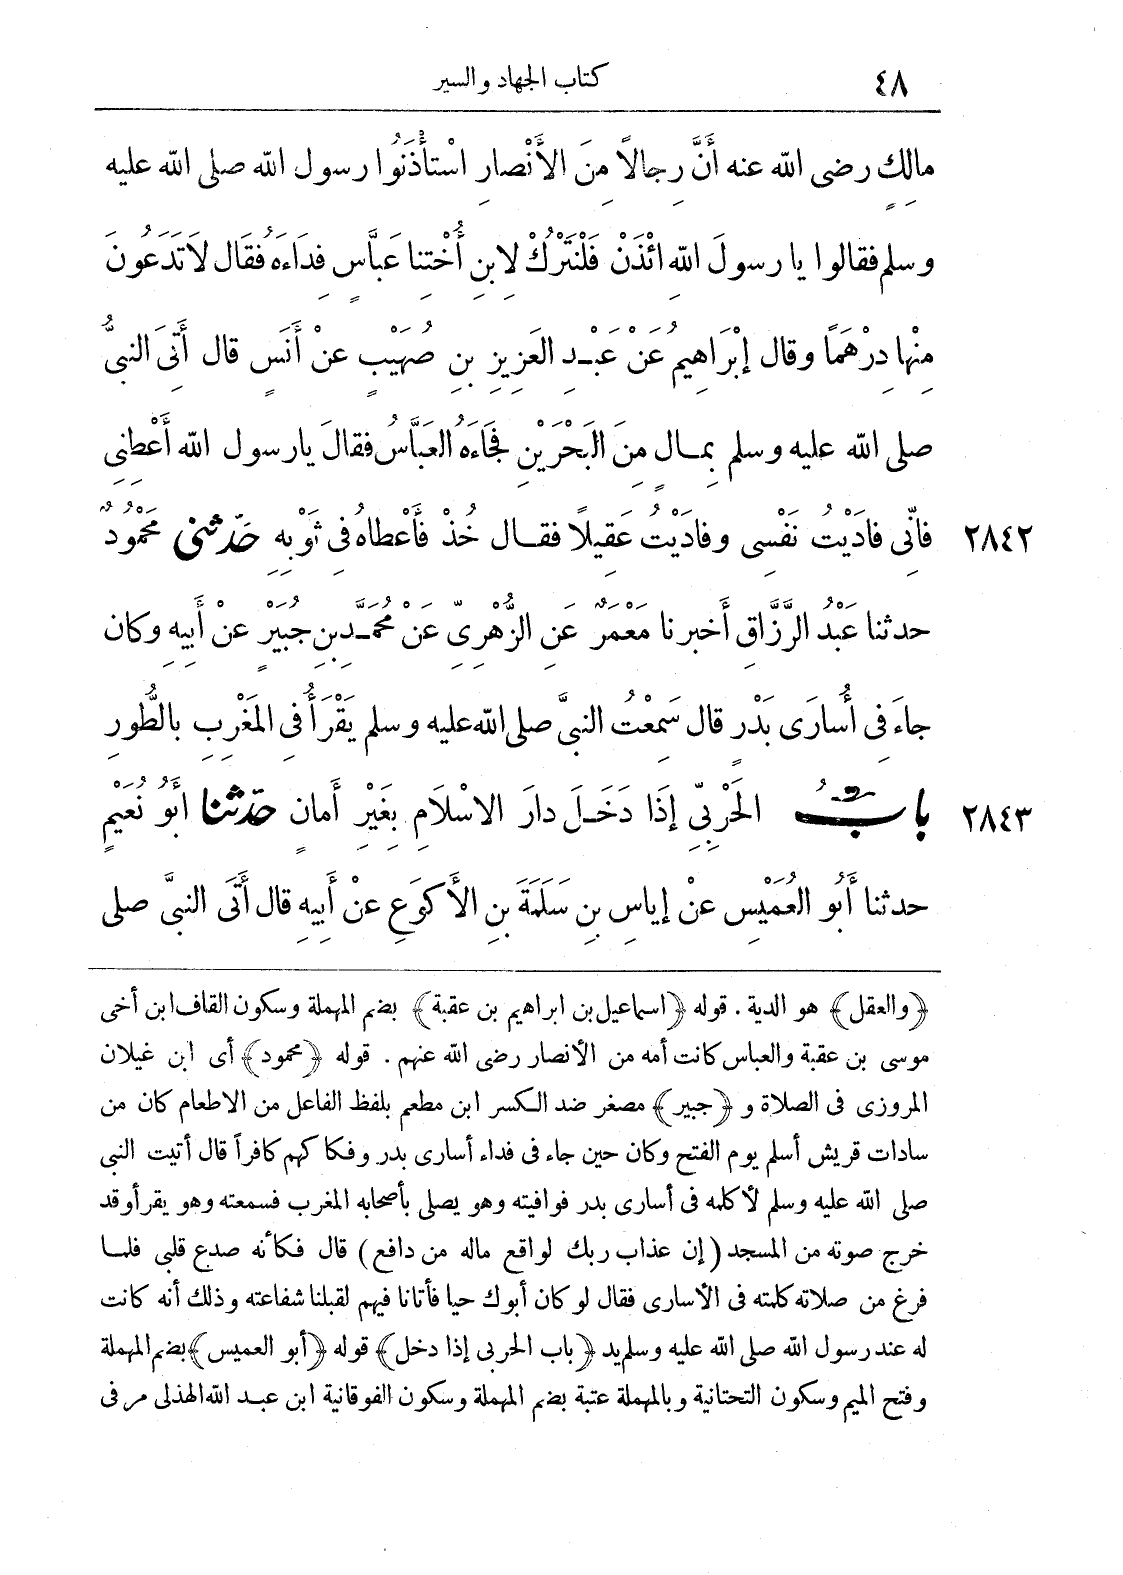 ٤٨ كتاب الجهاد والسير
مالِكٍ رضى الله عنه أَنَّ رِجالاً مِنَ الأَنْصارِ اسْتأْذَنُوا رسول الله صلى الله عليه
وسلم فقالوا يا رسولَ اللهِ ائْذَنْ فَلْنَتْرُكْ لِابنِ أُخْتِنا عَبَّاسٍ فِدَاءَهُ فقال لا تَدَعُونَ
مِنْها دِرْهَمًا وقال إبْرَاهِيمُ عَنْ عَبْدِ العَزِيزِ بنِ صُهَيْبٍ عنْ أَنَسٍ قال أُتِىَ النبىُّ
صلى الله عليه وسلم بِمالٍ مِنَ البَحْرَيْنِ فَجَاءَهُ العَبَّاسُ فقالَ يارسول الله أَعْطِنِى
٢٨٤٢ فانِّى فادَيْتُ نَفْسِى وفادَيْتُ عَقِيلاً فقال خُذْ فأَعْطاهُ فِى ثَوْبِهِ حَدّثنى مَحْمُودٌ
حدثنا عَبْدُ الرَّزَّاقِ أَخبرنا مَعْمَرٌ عَنِ الزُّهْرِىّ عَنْ مُحَمَّدِ بنِ جُبَيْرٍ عنْ أَبِيهِ وكان
جاءَ فِى أُسارَى بَدْرٍ قال سَمِعْتُ النبىَّ صلى الله عليه وسلم يَقْرَأُ فِى المَغْرِبِ بالطُّورِ
٢٨٤٣ بابُ الحَرْبِىِّ إذَا دَخَلَ دارَ الاسْلَامِ بِغَيْرِ أَمانٍ حدّثنا أَبُو نُعَيْمٍ
حدثنا أَبُو العُمَيْسِ عنْ إياسِ بنِ سَلَمَةَ بنِ الأَكوَعِ عنْ أَبِيهِ قال أَتَى النبىَّ صلى
﴿والعقل﴾ هو الدية . قوله ﴿اسماعيل بن ابراهيم بن عقبة﴾ بضم المهملة وسكون القاف ابن أخى
موسى بن عقبة والعباس كانت أمه من الأنصار رضى الله عنهم . قوله ﴿محمود﴾ أى ابن غيلان
المروزى فى الصلاة و ﴿جبير﴾ مصغر ضد الكسر ابن مطعم بلفظ الفاعل من الاطعام كان من
سادات قريش أسلم يوم الفتح وكان حين جاء فى فداء أسارى بدر وفكاكهم كافراً قال أتيت النبى
صلى الله عليه وسلم لأكلمه فى أسارى بدر فوافيته وهو يصلى بأصحابه المغرب فسمعته وهو يقرأ وقد
خرج صوته من المسجد ( إن عذاب ربك لواقع ماله من دافع ) قال فكأنه صدع قلبى فلما
فرغ من صلاته كلمته فى الأسارى فقال لو كان أبوك حيا فأتانا فيهم لقبلنا شفاعته وذلك أنه كانت
له عند رسول الله صلى الله عليه وسلم يد ﴿باب الحربى إذا دخل﴾ قوله ﴿أبو العميس﴾ بضم المهملة
وفتح الميم وسكون التحتانية وبالمهملة عتبة بضم المهملة وسكون الفوقانية ابن عبد الله الهذلى مر فى